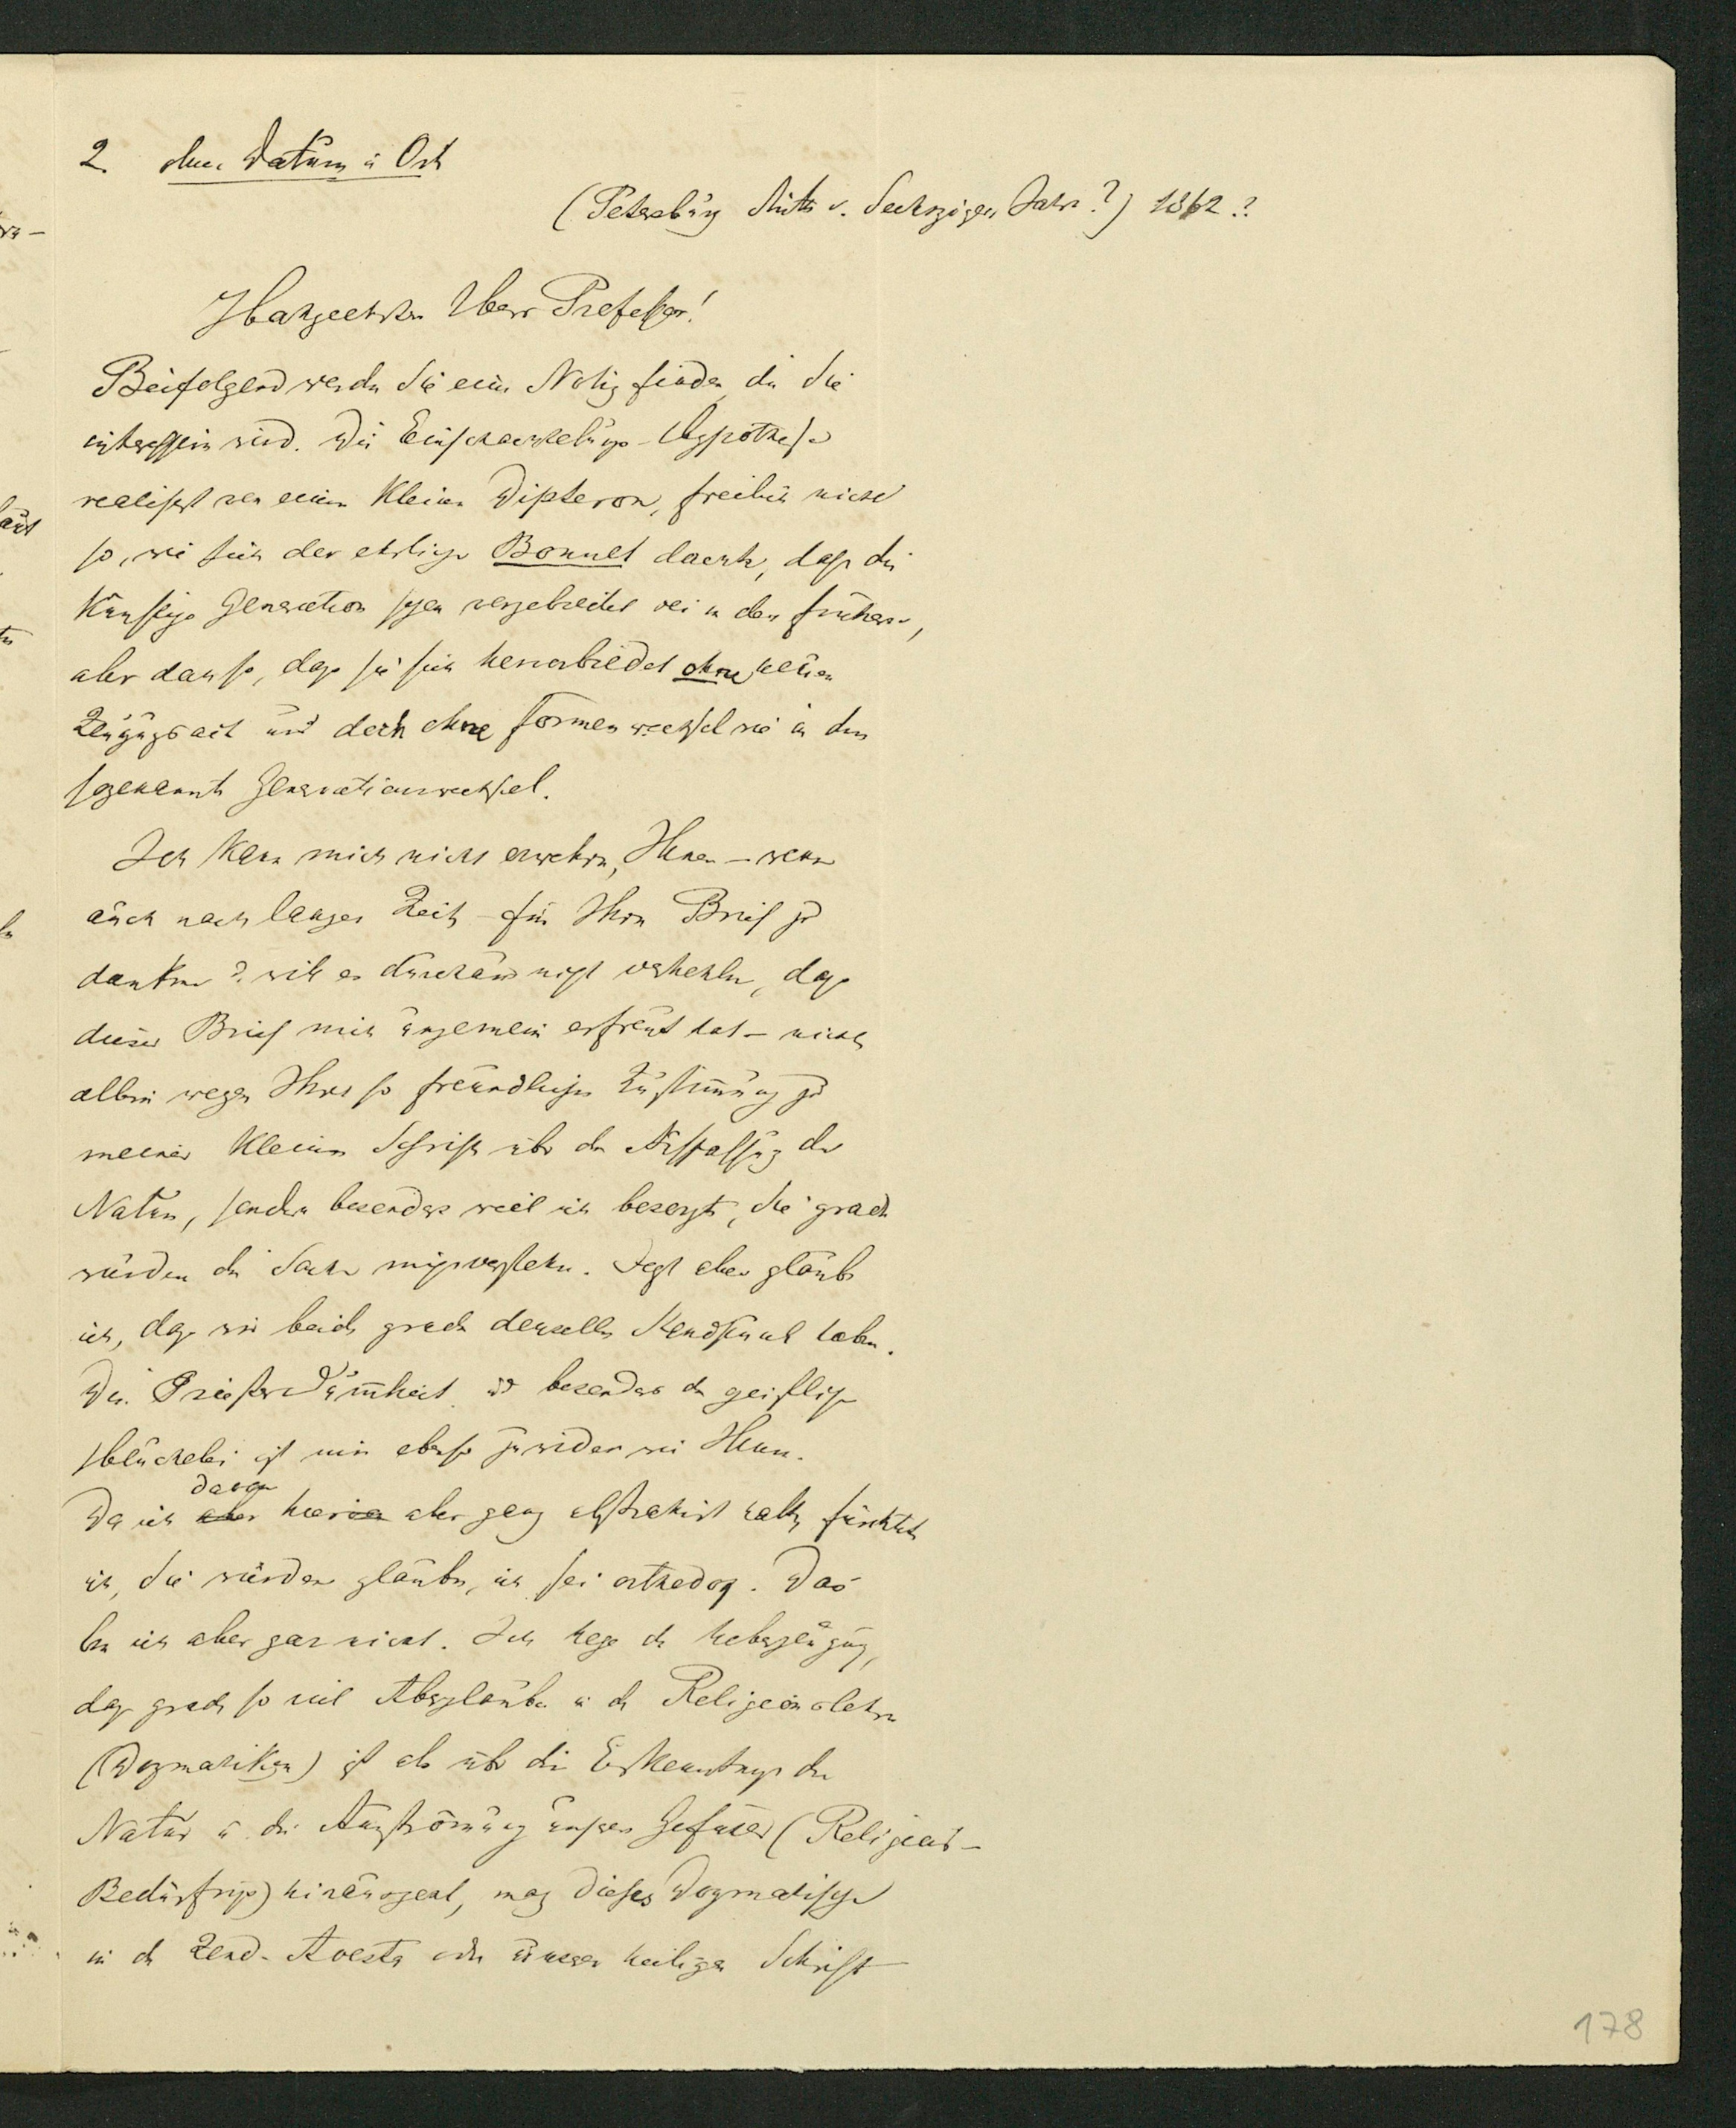 2. ohne Datum u Ort
(Petersburg Mitte d. Sechziger Jahre?) 1862.?
Hochgeehrter Herr Professor!
Beifolgend werden Sie eine Notiz finden, die Sie
interessiren wird. Die Einschachtelungs-Hypothese
realisirt von einem kleinen Dipteron, freilich nicht
so, wie sich der ehrliche Bonnet dachte, dass die
künftige Generation schon vorgebildet sei in der früheren,
aber dann so, dass sie sich heranbildet ohne neuen
Zeugungsact und doch ohne Formenwechsel wie in dem
sogenannten Generationswechsel.
Ich kann mich nicht erwehren, Ihnen – wenn
auch nach langer Zeit – für Ihren Brief zu
danken u. will es durchaus nicht verhehlen, dass
dieser Brief mich ungemein erfreut hat – nicht
allein wegen Ihrer so freundlichen Zustimmung zu
meiner kleinen Schrift über die Auffassung der
Natur, sondern besonders weil ich besorgte, Sie grade
würden die Sache missverstehen. Jetzt aber glaube
ich, dass wir beide grade denselben Standpunkt haben.
Die Priester Dummheit und besonders die geistliche
Heuchelei ist mir ebenso zuwider wie Ihnen.
Da ich aber davon hierin aber ganz abstrahirt hatte, fürchtete
ich, Sie würden glauben, ich sei orthodox. Das
bin ich aber gar nicht. Ich hege die Ueberzeugung,
dass grade so viel Aberglaube in der Religionslehre
(Dogmatiken) ist als über die Erkenntniss der
Natur u. die Ausströmung unserer Gefühle (Religions-
Bedürfniss) hinausgeht, mag dieses Dogmatische
in der Zend-Avesta oder unserer heiligen Schrift
178